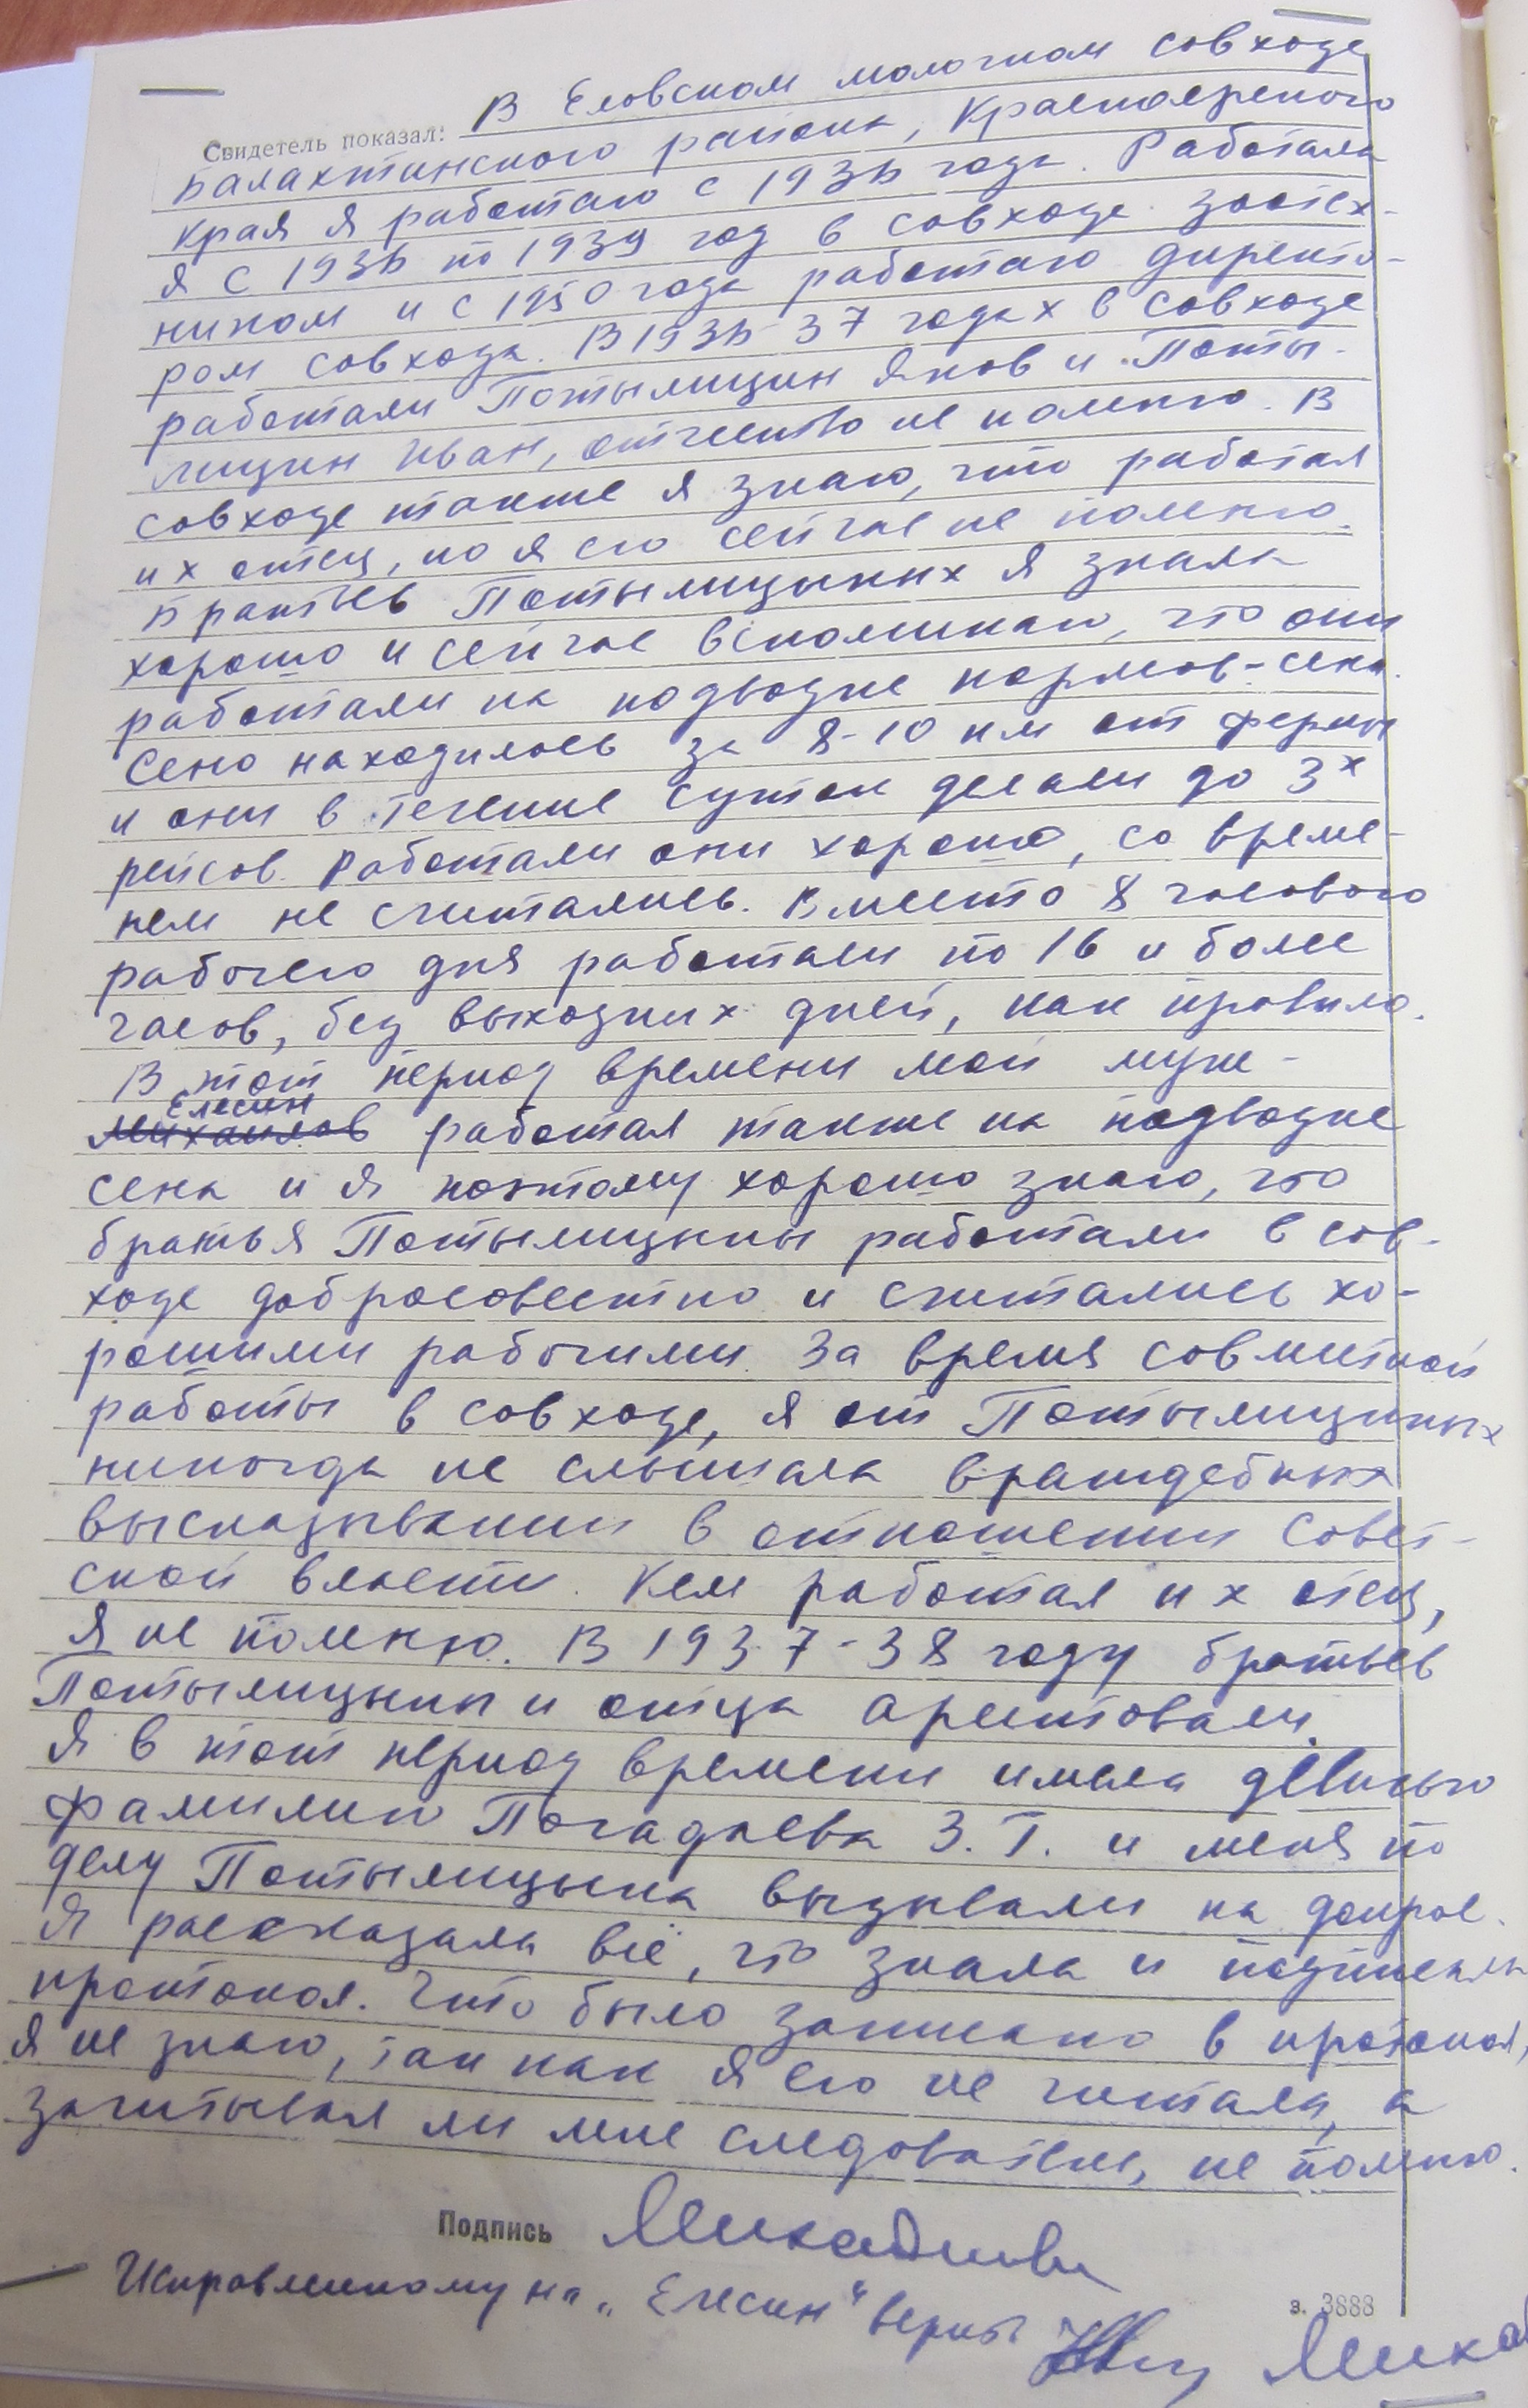 Свидетель показал: В Еловском молочном совхозе
Балахтинского района, Красноярского
края я работаю с 1936 года. Работала
я с 1936 по 1939 год в совхозе зоотех-
ником и с 1950 года работаю директо-
ром совхоза. В 1936-37 годах в совхозе
работали Потылицин Яков и Поты-
лицин Иван, отчество не помню. В
совхозе также я знаю, что работал
их отец, но я его сейчас не помню.
Братьев Потылициных я знала
хорошо и сейчас вспоминаю, что они
работали на подвозке кормов-сена.
Сено находилось за 8-10 км от фермы
и они в течение суток делали до 3х
рейсов. Работали они хорошо, со време-
нем не считались. Вместо 8 часового
рабочего дня работали по 16 и более
часов, без выходных дней, как правило.
В тот период времени мой муж -
Елесин
Михаилов работал также на подвозке
сена и я поэтому хорошо знаю, что
братья Потылицыны работали в сов-
хозе добросовестно и считались хо-
рошими рабочими. За время совместной
работы в совхозе, я от Потылициных
никогда не слышала враждебных
высказывании в отношении Совет-
ской власти. Кем работал их отец,
я не помню. В 1937-38 году братьев
Потылицыны и отца арестовали.
Я в тот период времени имела девичью
фамилию Погадаева З.Т. и меня по
делу Потылицына вызывали на допрос.
Я рассказала всё, что знала и подписала
протокол. Что было записано в протокол,
я не знаю, так как я его не читала, а
зачитывал ли мне следователь, не помню.
Подпись
Исправленному на „Елесин" верить
з. 3888